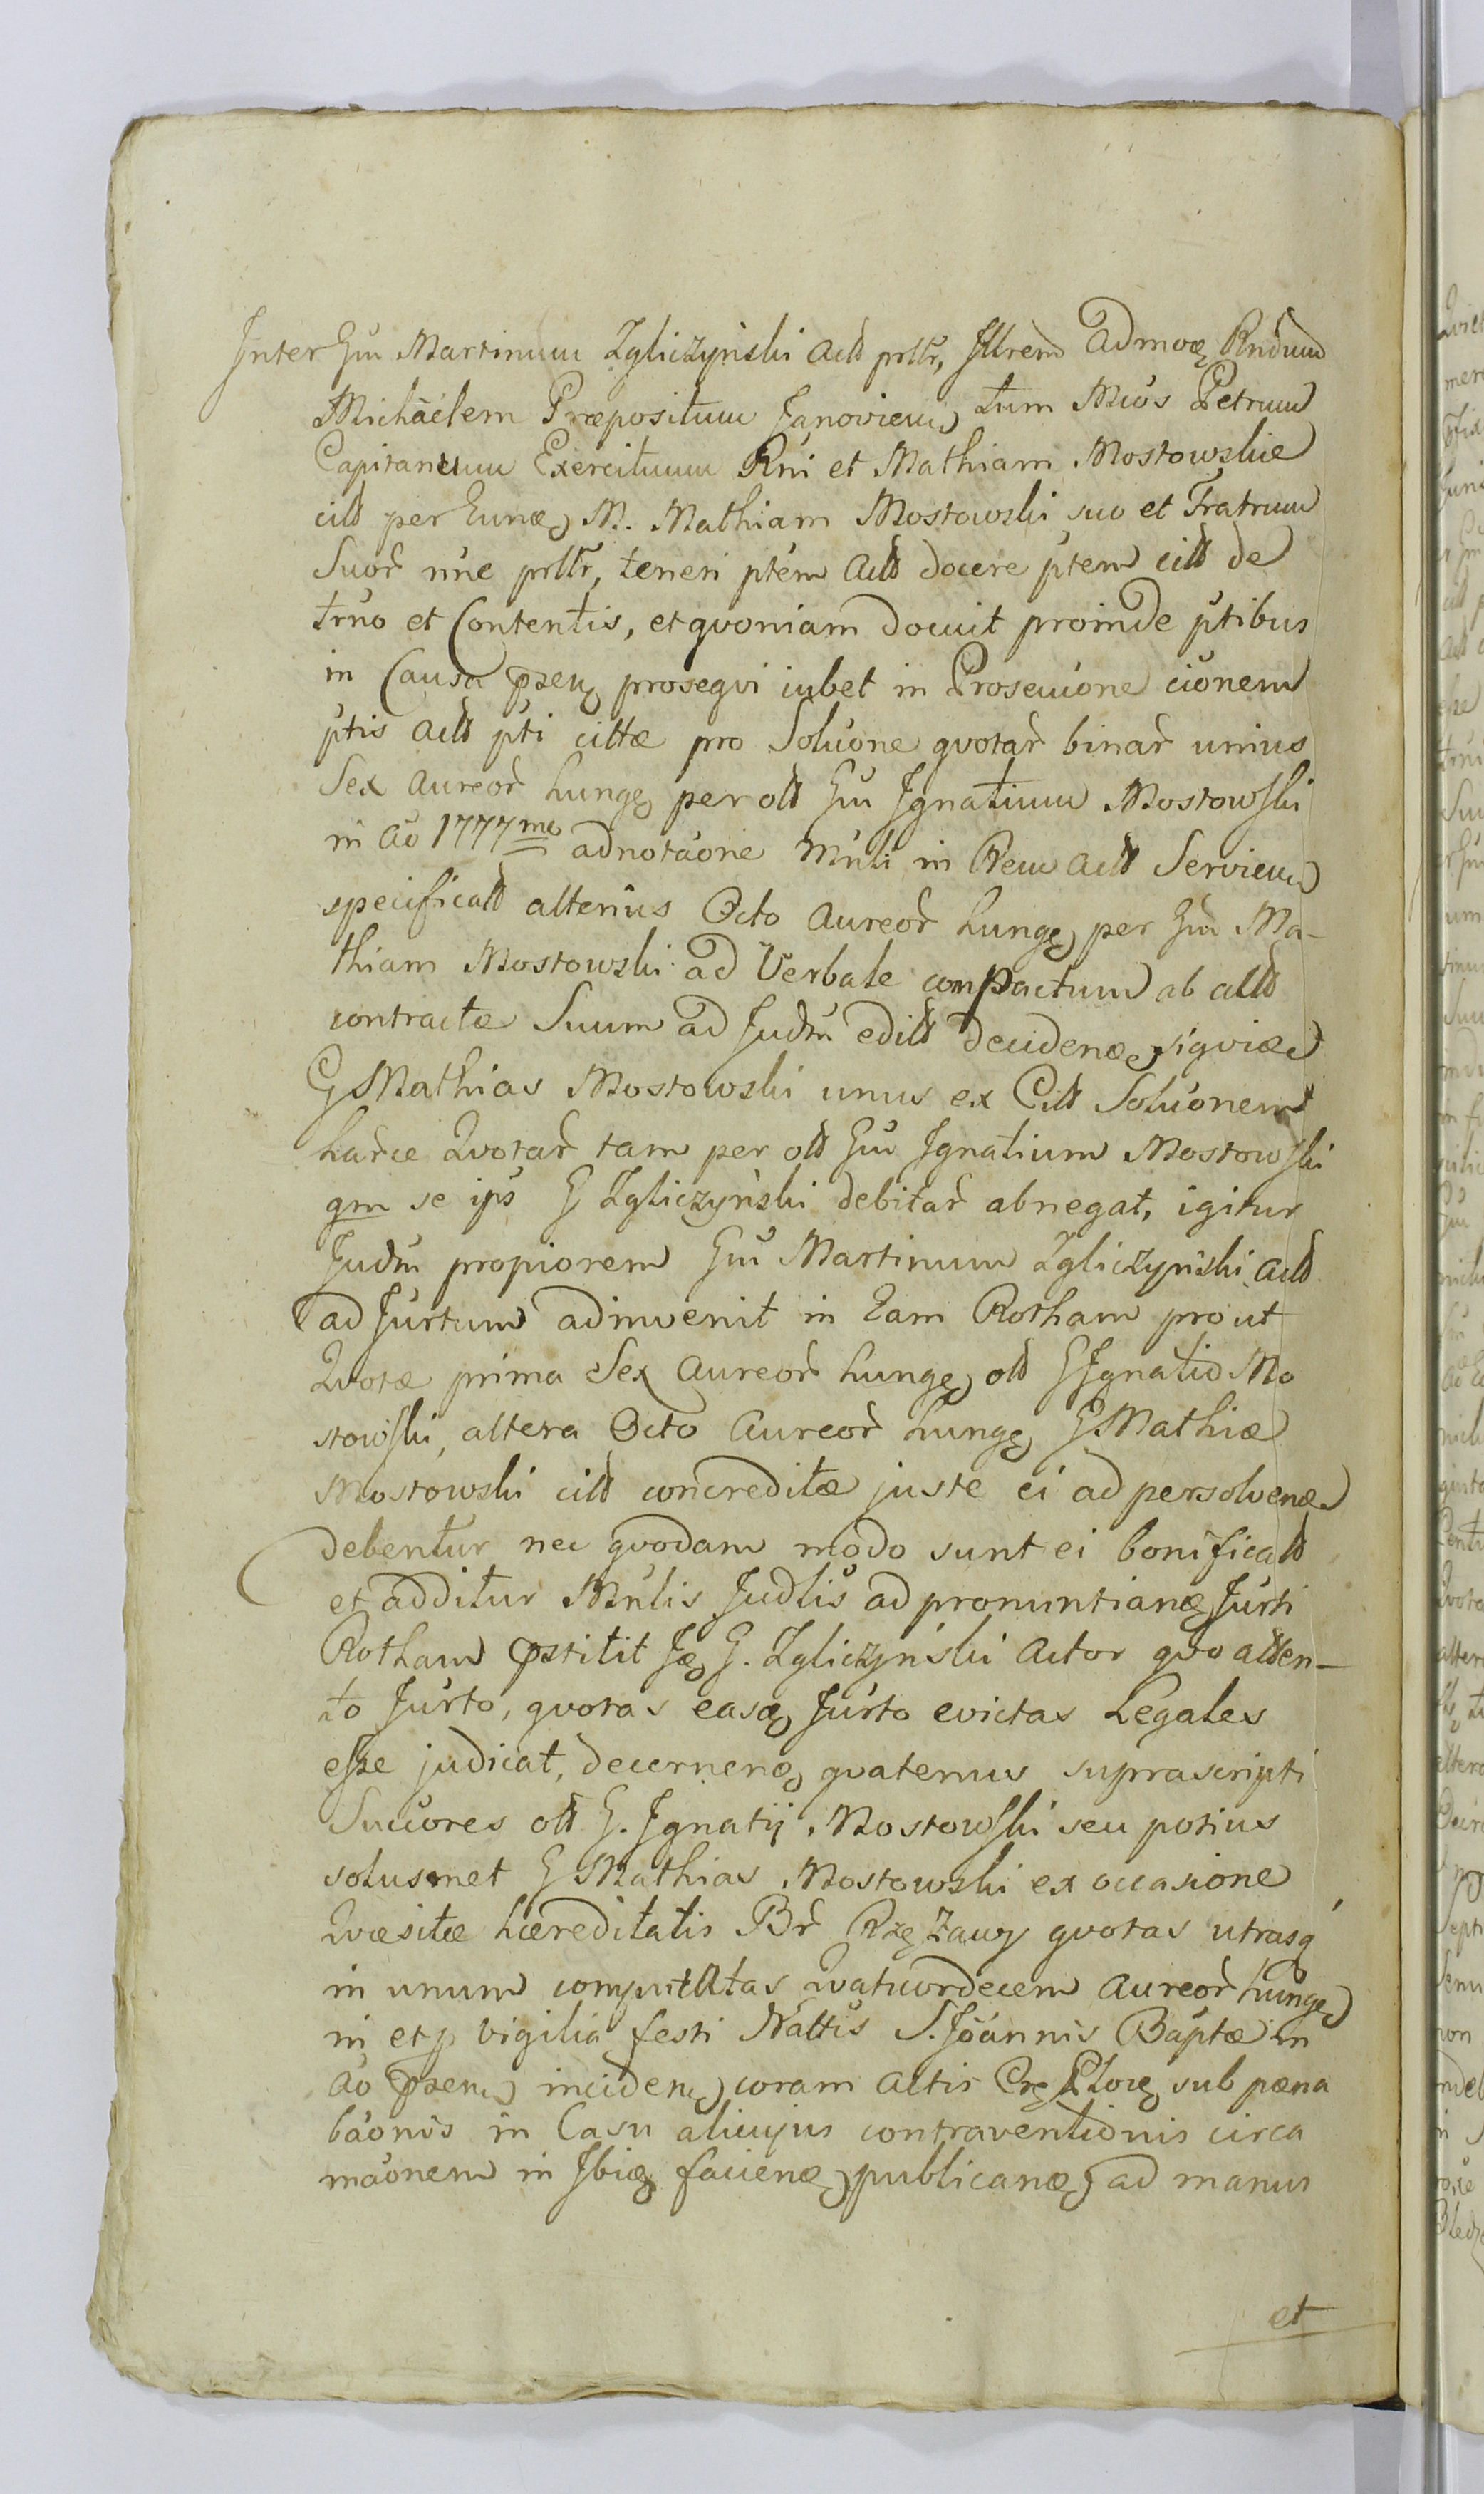 Inter Gm̄ Martinum Zgliczyński Actt prltr, Illrem Admoꝗ Rndum
Michäelem Præpositum Janovien tum Mcos Petrum
Capitaneum Exercituum Rni et Mathiam Mostowskie
citt per Eunꝗ M. Mathiam Mostowski suo et Fratrum
Suor nne prltr, teneri ptem Actt docere ptem citt de
trno et Contentis, et qvoniam docuit proinde ptibus
in Causa pzen proseqvi iubet in Prosecuone cionem
ptis actt pti cittæ pro Soluone qvotar binar unius
Sex Aureor hung per ott Gm̄ Ignatium Mostowski
in Ao 1777mo adnotaone Mnli in Rem actt Servien
specificatt alterius Octo Aureor hung per Gm̄ Ma-
thiam Mostowski ad Verbale compactum ab actt
contractæ Suum ad Judm editt decidenꝗ, siqviꝗ
G Mathias Mostowski unus ex Citt Soluonem
harce Qvotar tam per ott Gm̄ Ignatium Mostowski
qm se ips G Zgliczyński debitar abnegat, igitur
Judm propiorem Gm̄ Martinum Zgliczyński actt
ad Jurtum adinvenit in Eam Rotham prout
Qvotæ prima Sex Aureor hung ott G Ignatio Mo
stowski, altera Octo Aureor hung G Mathiæ
Mostowski citt concreditæ juste ei ad persolvenꝗ
debentur nec qvodam modo sunt ei bonificatt
et additur Mnlis Judlis ad pronuntianꝗ Jurti
Rotham pstitit Jꝗ G. Zgliczyński Actor qvo atten-
to Jurto, qvotas easꝗ Jurto evictas Legales
esse judicat, decernenꝗ qvatenus suprascripti
Succores ott G. Ignatij Mostowski seu potius
solusmet G Mathias Mostowski ex occasione
Qvæsitæ hæreditatis Br Rzężawy qvotas utrasq
in unum computatas Qvatuordecem Aureor hung
in et p vigilia festi Nattis S. Joannis Baptæ in
Ao pzen inciden coram Actis Cr Ploc sub pæna
baonis in Casu alicujus contraventionis circa
maonem in Ibiꝗ facienꝗ publicanꝗ ad manus
et